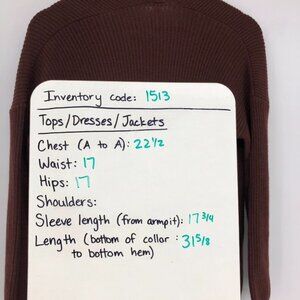 Inventory code: 1513
Tops/Dresses/Jackets
Chest (A to A): 22 1/2
Waist: 17
Hips: 17
Shoulders:
Sleeve length (from armpit): 17 3/4
Length (bottom of collar : 31 5/8
to bottom hem)